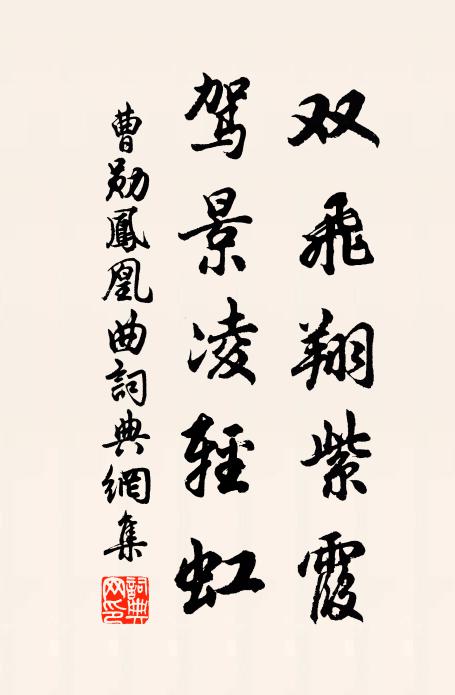 双飛翔紫霞
驾景凌輕虹
曹勋鳳凰曲詞典網集
詞典网印